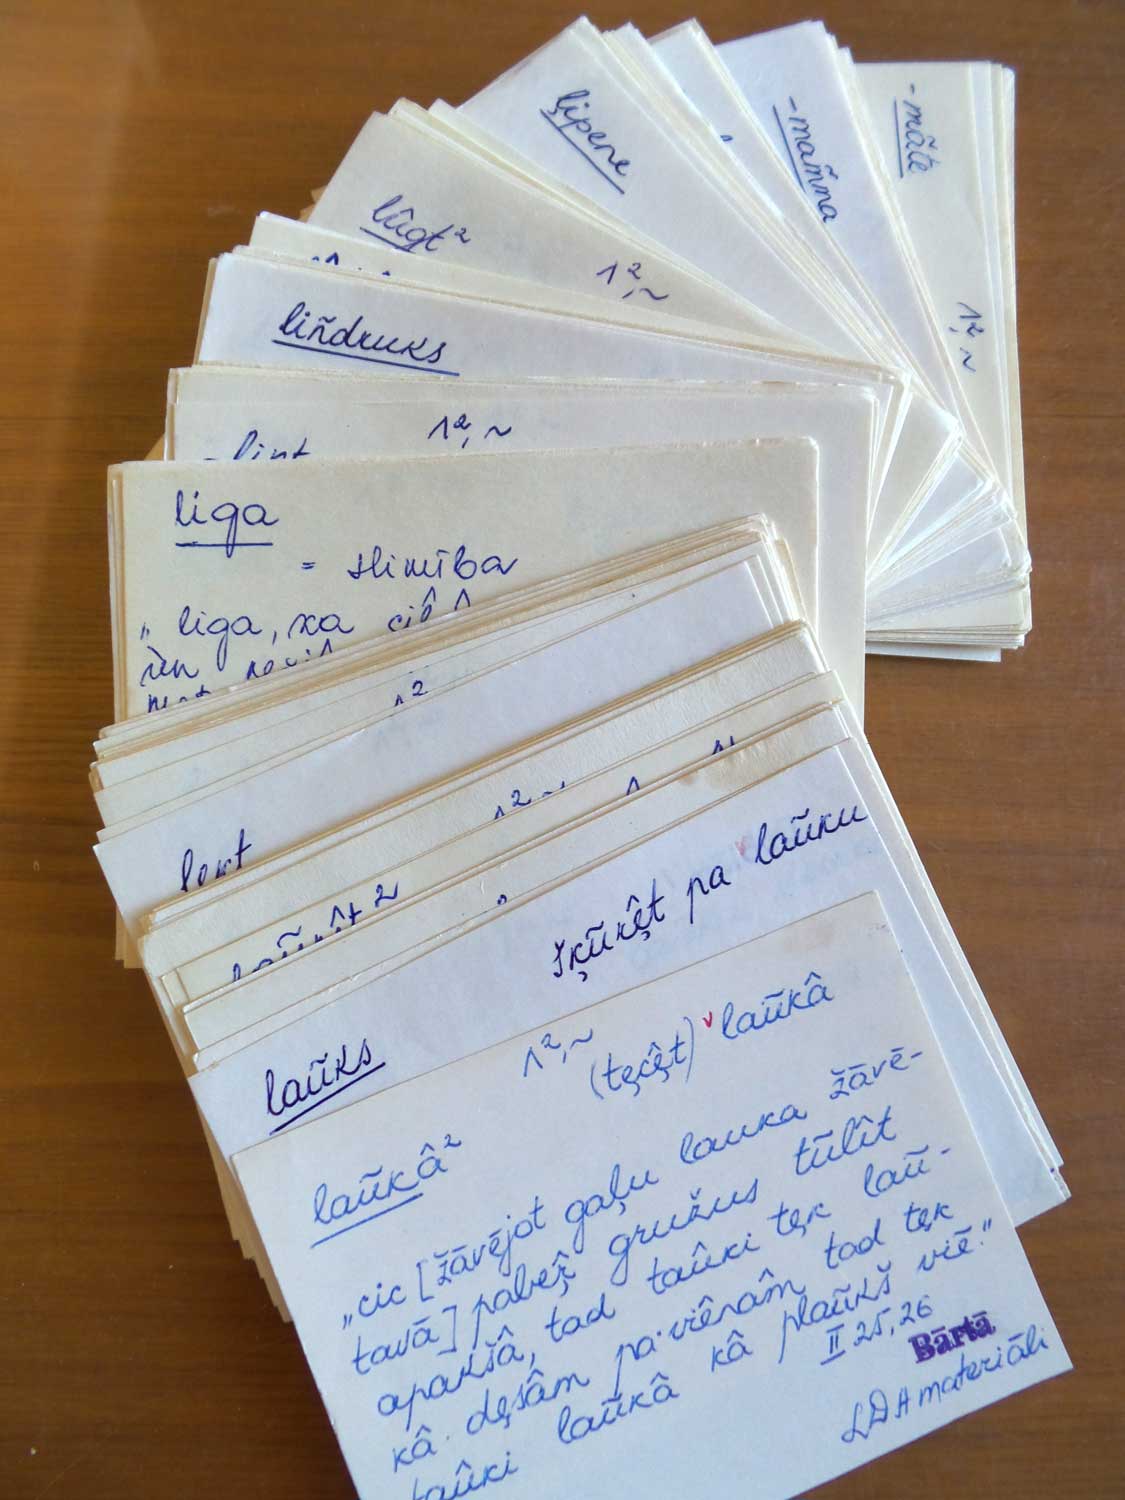 -māte
1², ~
-mam̃ma
ļipene
lûgt²
1², ~
liñdruks
1², ~
liga
= slimība
„ liga, ka
1²
1², ~
laũks
šķūrêt pa laũku
1², ~
(tęcêt) ᵛ laũkâ
laũkâ²
„cic [žāvējot gaļu lauka žāvē-
tavā] pabeŗ gružus tūlît
apakšâ, tad taũki tęk laũ-
kâ. dęsâm pa·viênam tad tęk
taũki laũkâ kâ plaũkš viē."
II 25, 26
Bārtā
LDA materiāli